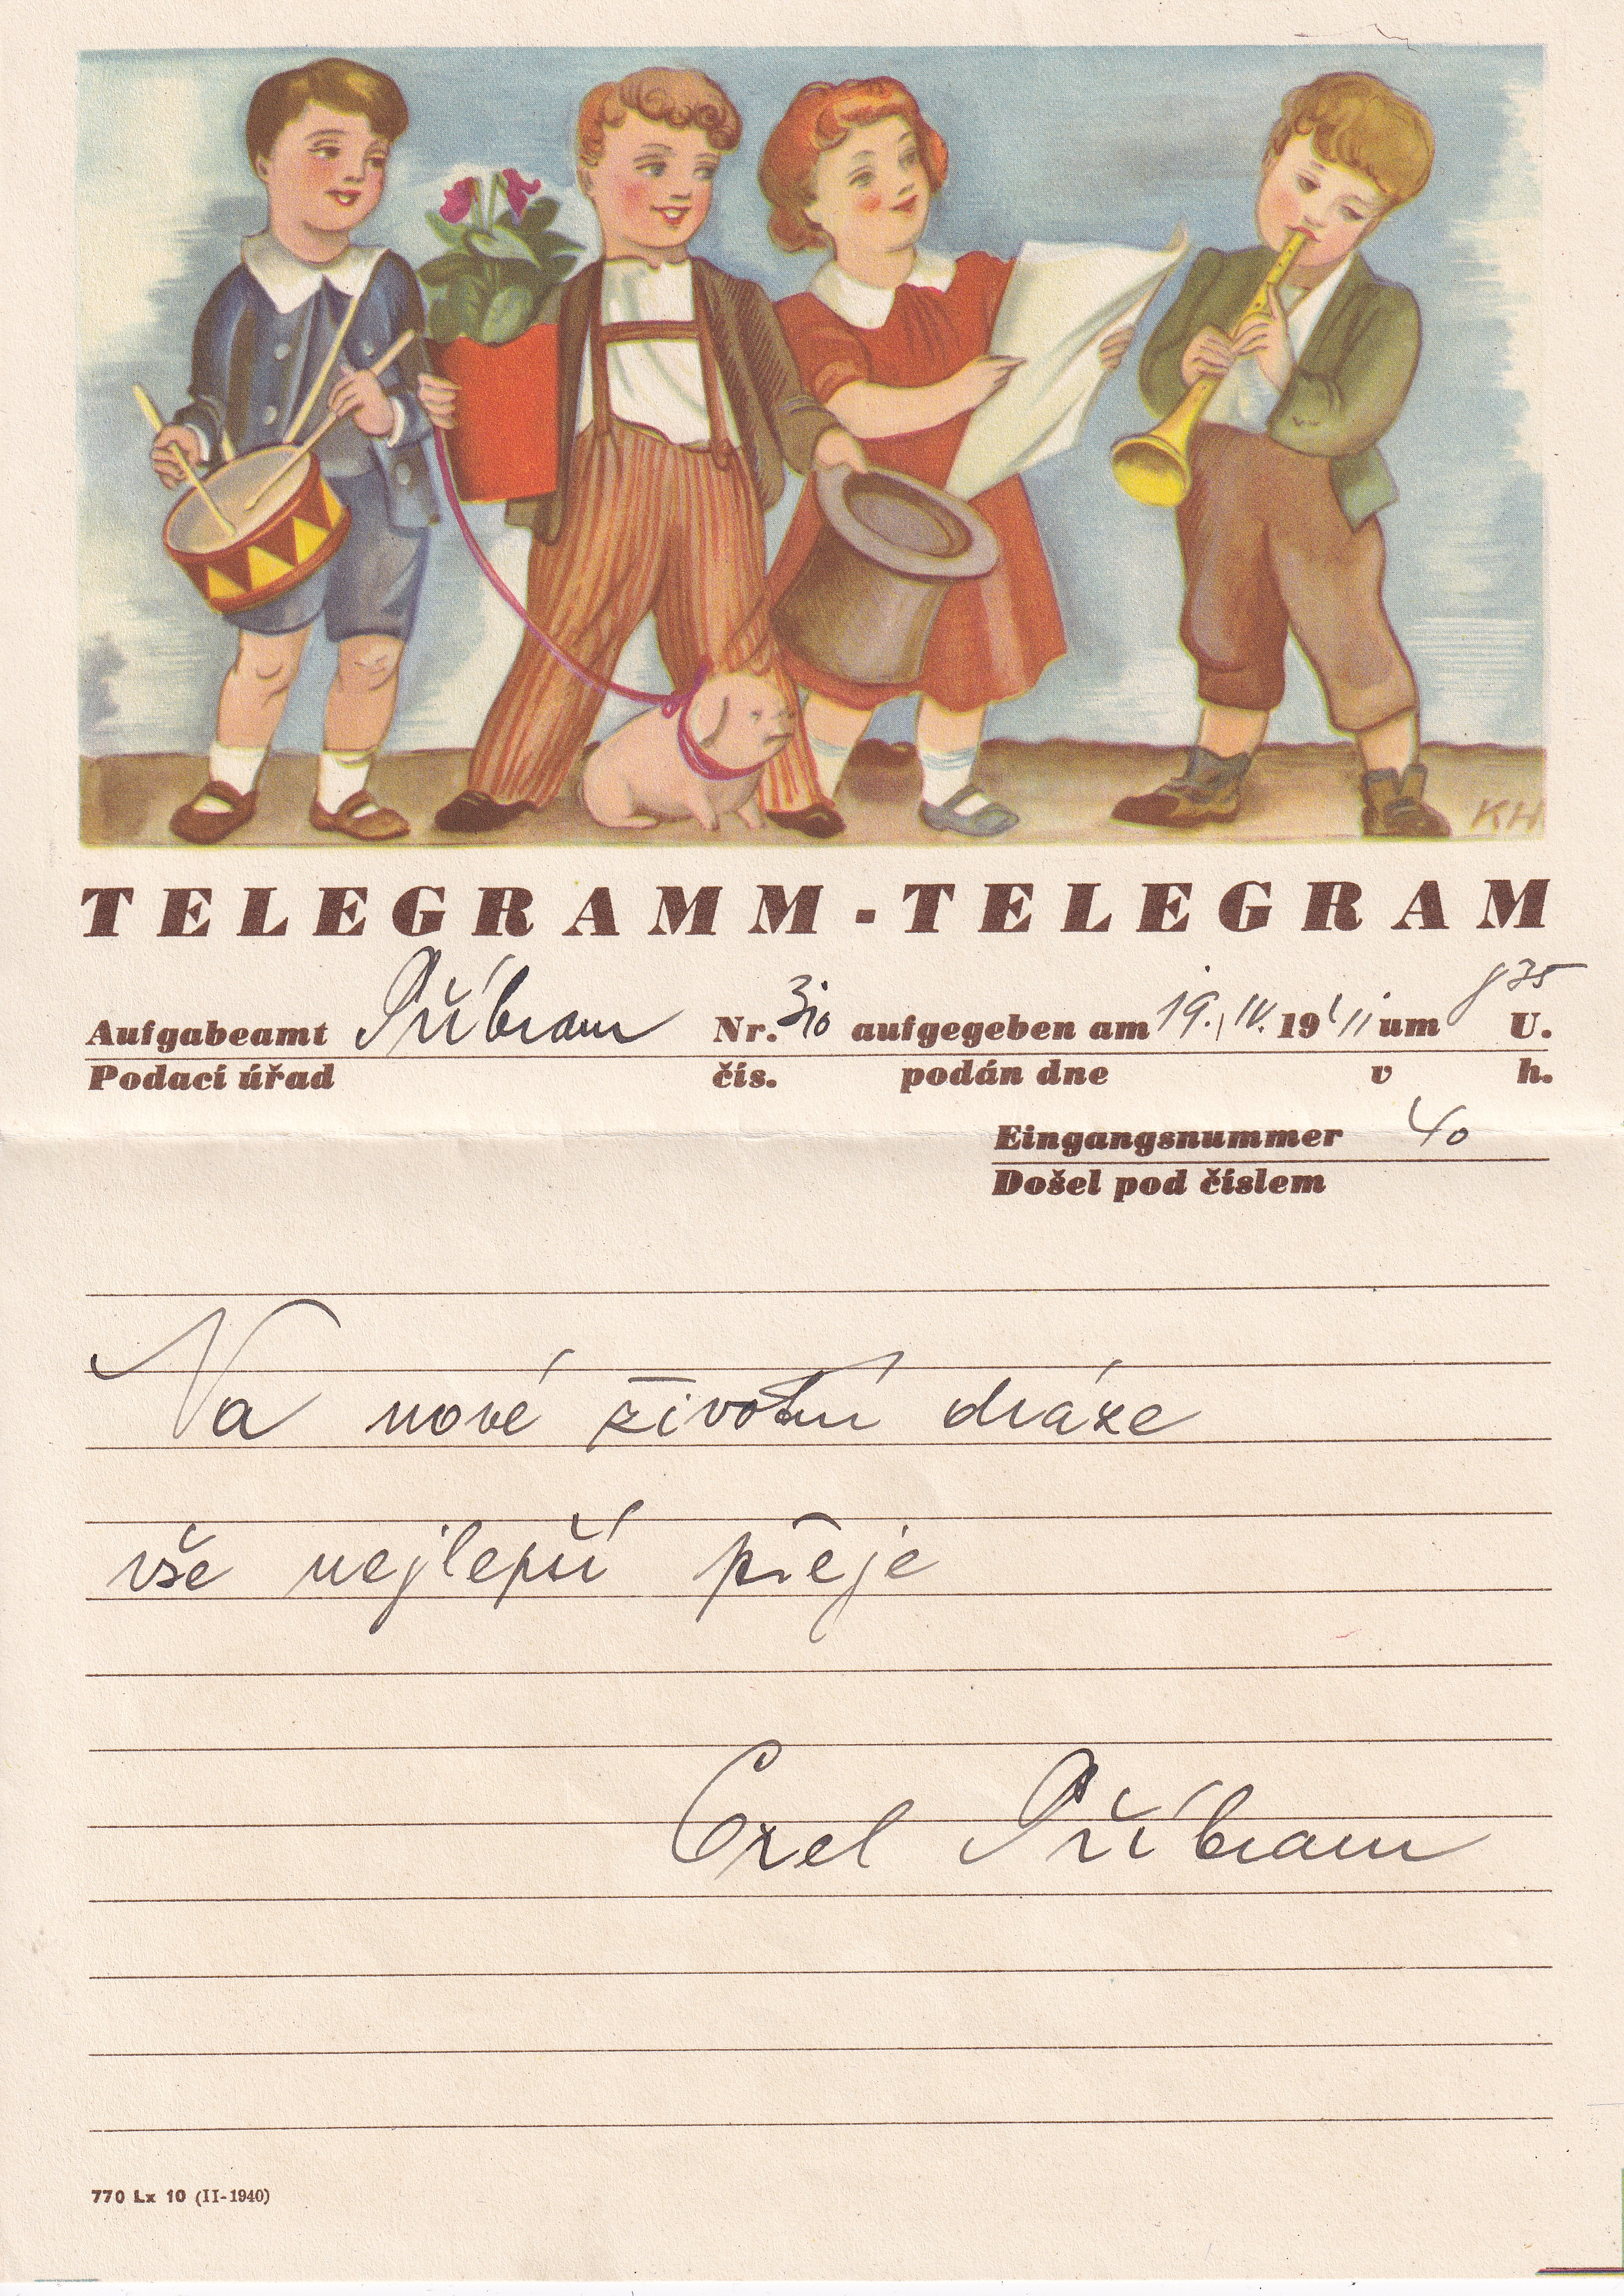 KH
TELEGRAMM - TELEGRAM
Aufgabeamt Příbram Nr. 310 aufgegeben am 19. IV. 1941 um 8 35 U.
Podací úřad čís. podán dne v h.
Eingangsnummer 40
Došel pod číslem
Na nové životní dráze
vše nejlepší přeje
Příbram
770 Lx 10 (II-1940)